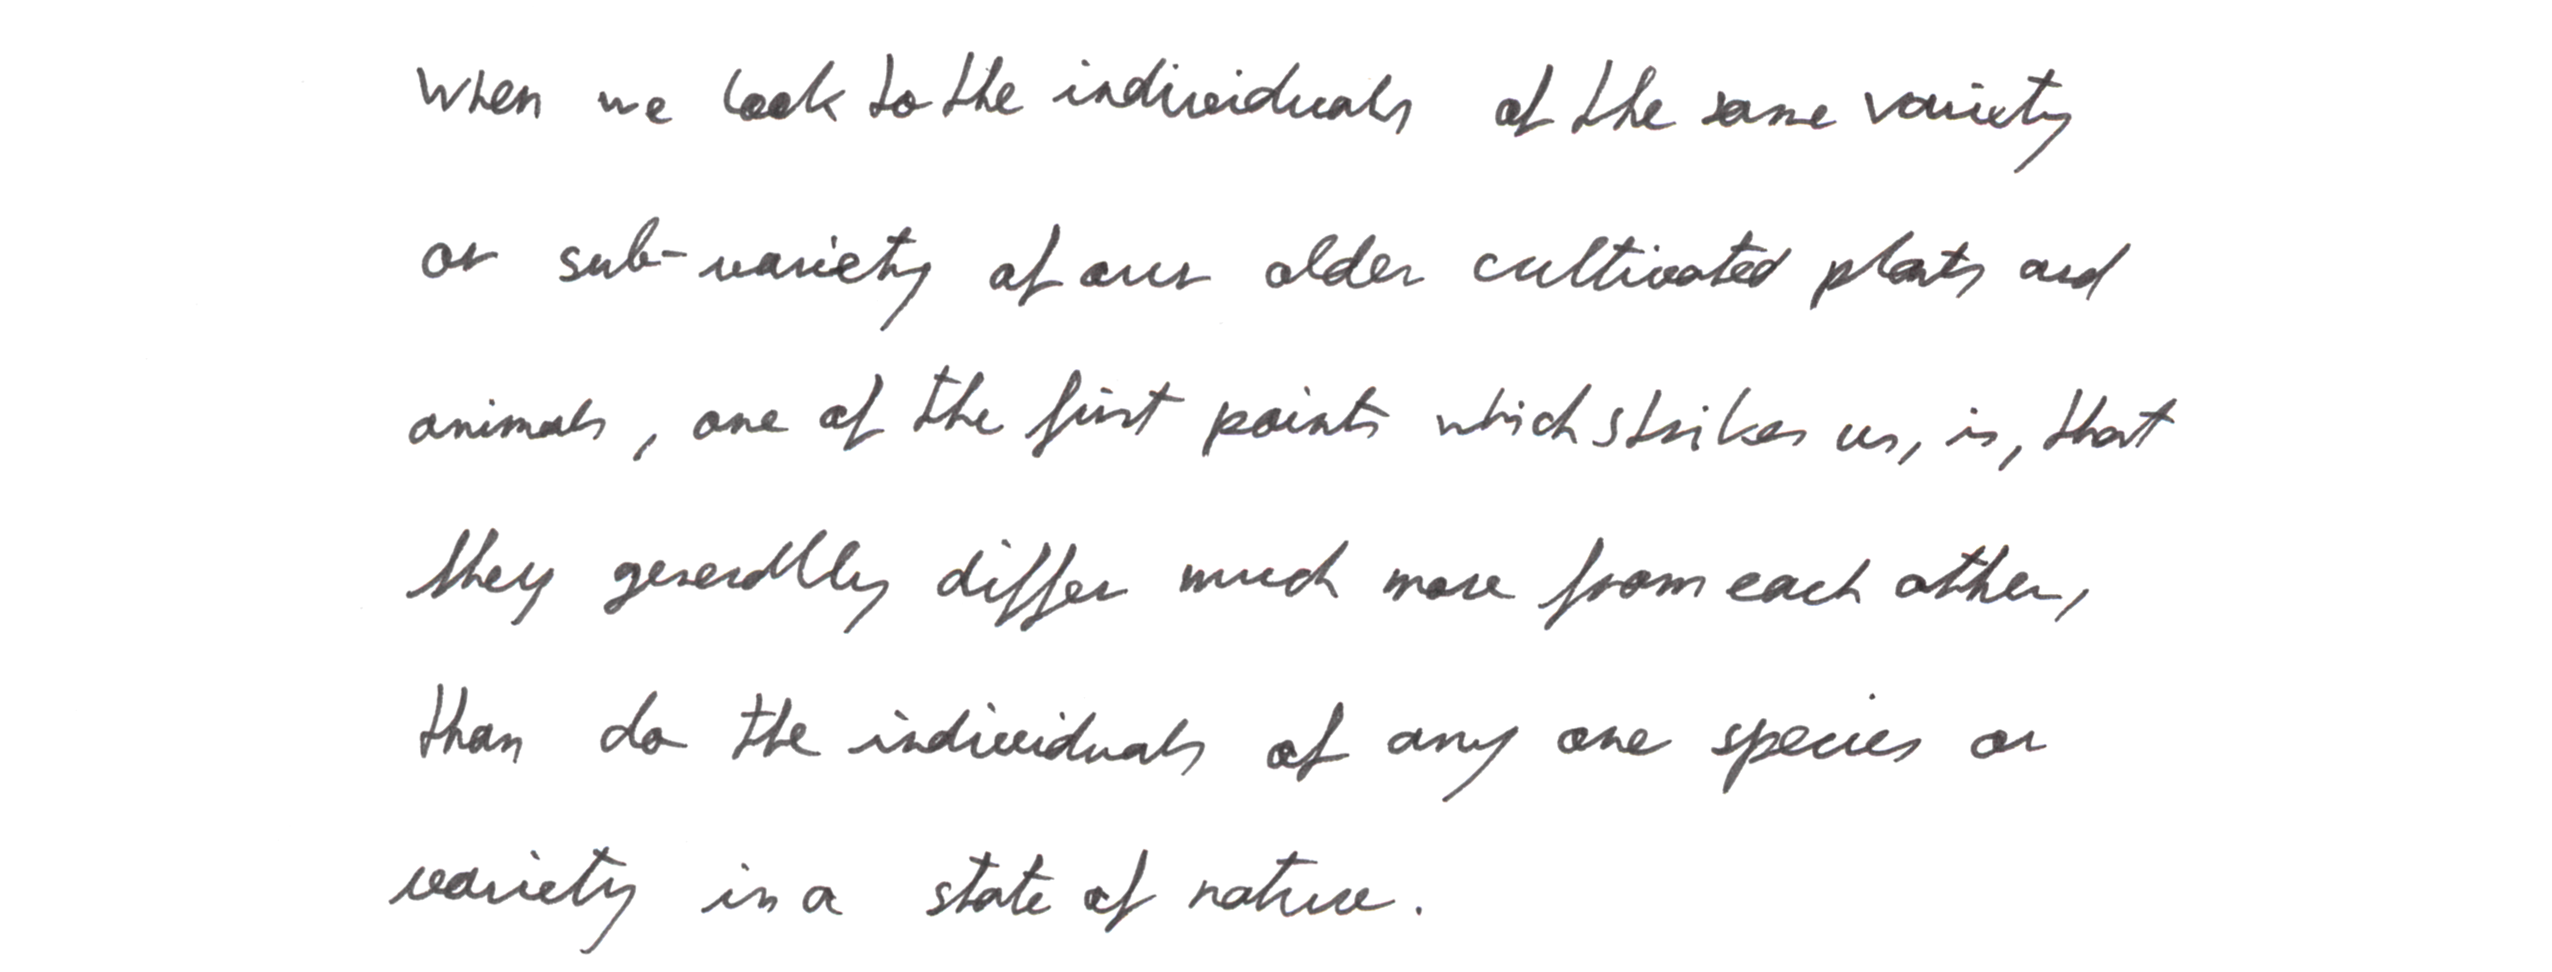 When we look to the individuals of the same variety
or sub-variety of our older cultivated plants and
animals, one of the first points which strikes us, is, that
they generally differ much more from each other,
than do the individuals of any one species or
variety in a state of nature.